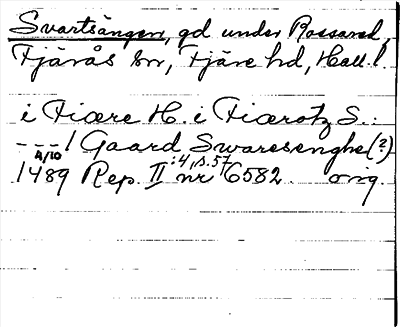 Svartsängen, gd under Rossared,
Fjärås sn, Fjäre hd, Hall. l.
i Fiære H. i Fiærotz S.:
--- 1 Gaard Swaresenghe (?)
4/10 1489 Rep. II :4, s. 57 nr 6582. orig.